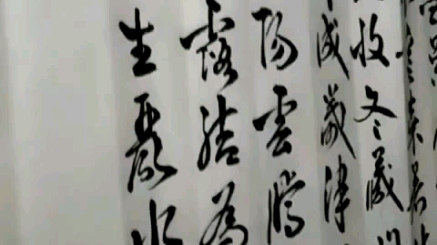 寒來暑
收冬藏
成歲律
陽雲騰
露結為
生麗水